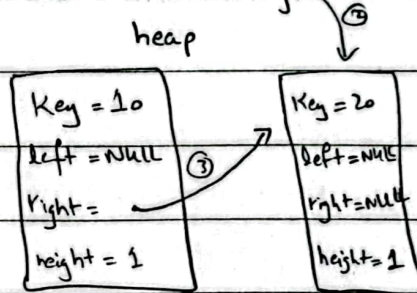 ②
heap
Key = 10
left = NULL
right =
height = 1
③
Key = 20
left = NULL
right = NULL
height = 1